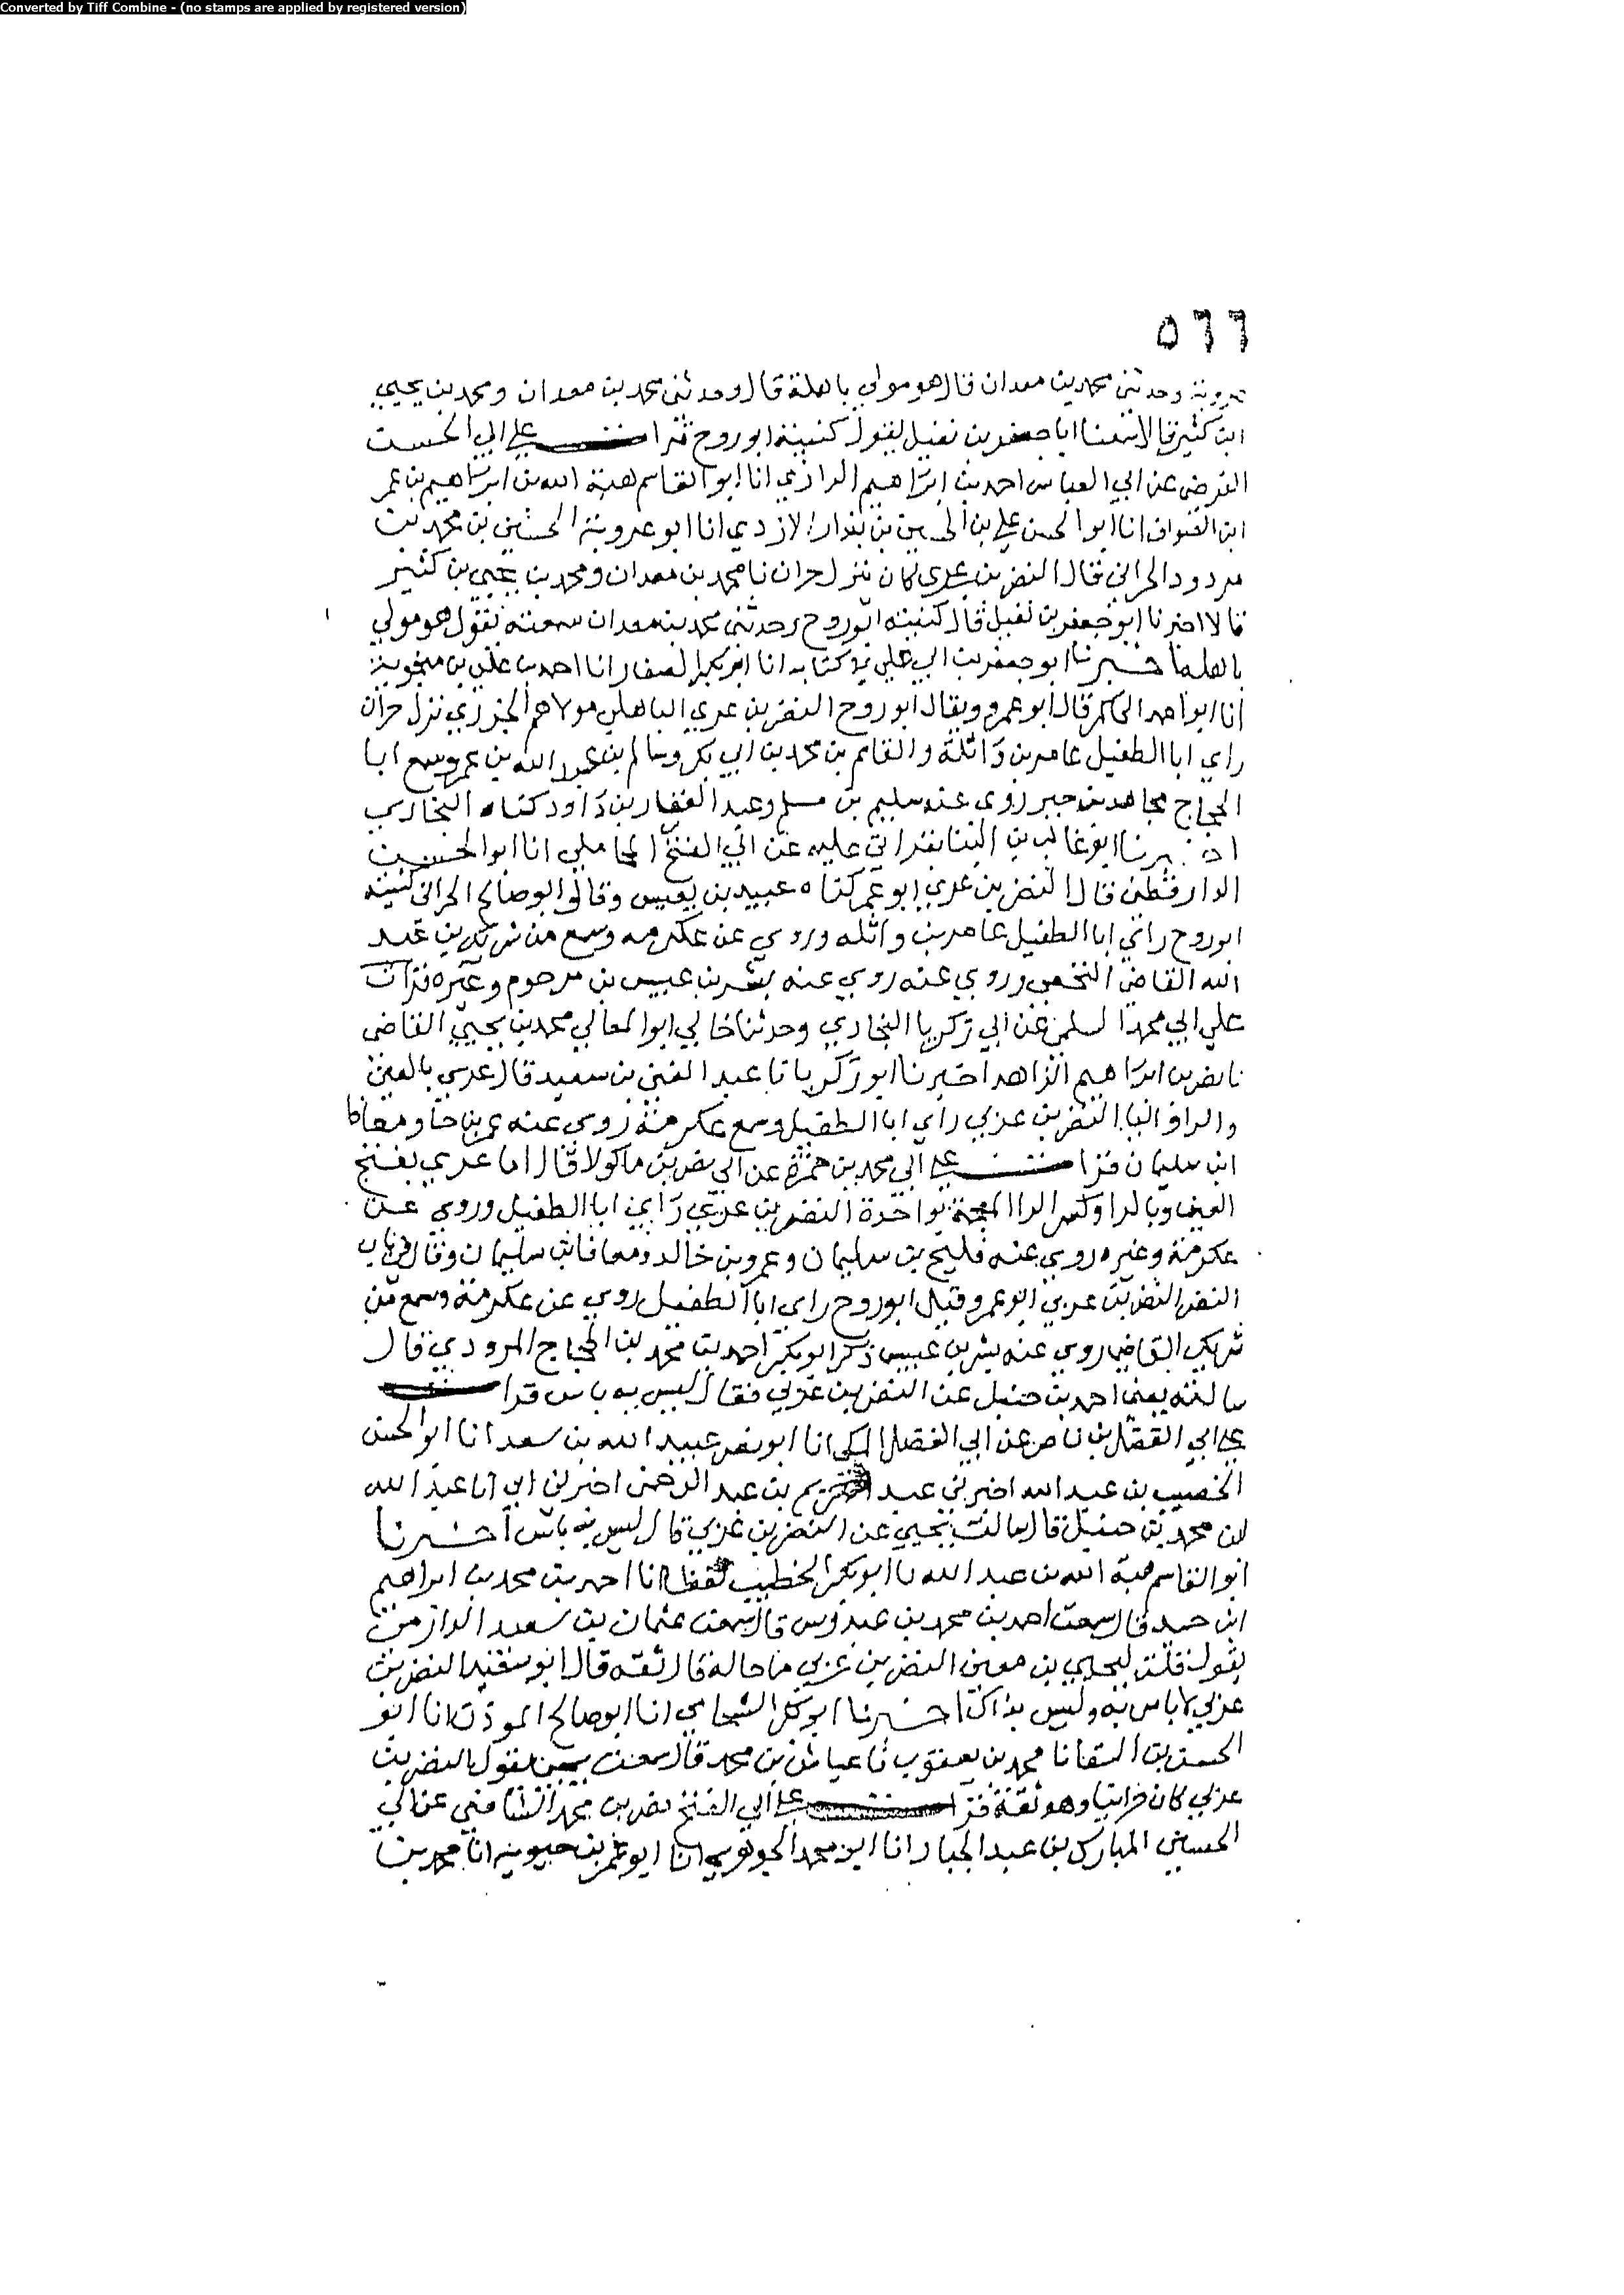 Converted by Tiff Combine - (no stamps are applied by registered version)
٥٦٦
عروبة وحدثني محمد بن معدان قال هو مولي باهلة قال وحدثني محمد بن معدان ومحمد بن يحيي
ابن كثير قالا سمعنا ابا جعفر بن نفيل يقول كنيته ابو روح قرات علي ابي الحسن
الفرضي عن ابي العباس احمد بن ابراهيم الرازي انا ابو القاسم هبة الله بن ابراهيم بن عمر
ابن الصواف انا ابو الحسن علي بن الحسين بن بندار الازدي انا ابو عروبة الحسين بن محمد بن
مودود الحراني قال النضر بن عربي كان ينزل حران نا محمد بن معدان ومحمد بن يحيي بن كثير
قالا اخبرنا ابو جعفر بن نفيل قال كنيته ابو روح وحدثني محمد بن معدان سمعته يقول هو مولي
باهلة اخبرنا ابو جعفر بن ابي علي في كتابه انا ابو بكر الصفار انا احمد بن علي بن منجويه
انا ابو احمد الحاكم قال ابو عمرو ويقال ابو روح النضر بن عربي الباهلي مولاهم الجزري نزل حران
راي ابا الطفيل عامر بن واثلة والقاسم بن محمد بن ابي بكر وسالم بن عبد الله بن عمر وسمع ابا
الحجاج مجاهد بن جبر روي عنه سليم بن مسلم وعبد الغفار بن داود كناه البخاري
اخبرنا ابو غالب بن البنا بقراتي عليه عن ابي الفتح المحاملي انا ابو الحسن
الدارقطني قال النضر بن عربي ابو عمر كناه عبيد بن يعيش وقال ابو صالح الحراني كنيته
ابو روح راي ابا الطفيل عامر بن واثله وروي عن عكرمه وسمع من شريك بن عبد
الله القاضي النخعي وروي عنه روي عنه بشر بن عبيس بن مرحوم وغيره قرات
علي ابي محمد السلمي عن ابي زكريا البخاري وحدثنا خالي ابو المعالي محمد بن يحيي القاضي
نا نصر بن ابراهيم الزاهد اخبرنا ابو زكريا نا عبد الغني بن سعيد قال عربي بالعين
والرا والبا النضر بن عربي راي ابا الطفيل وسمع عكرمة روي عنه عمر بن خالد ومعافا
ابن سليمان قرات علي ابي محمد بن حمزة عن ابي نصر بن ماكولا قال اما عربي بفتح
العين وبالرا وكسر البا المعجمة بواحدة النضر بن عربي راي ابا الطفيل وروي عن
عكرمة وغيره روي عنه فليح بن سليمان وعمرو بن خالد ومعافا بن سليمان وقال في باب
النضر النضر بن عربي ابو عمر وقيل ابو روح راي ابا الطفيل روي عن عكرمة وسمع من
شريك القاضي روي عنه بشر بن عبيس ذكر ابو بكر احمد بن محمد بن الحجاج المروذي قال
سالته يعني احمد بن حنبل عن النضر بن عربي فقال ليس به باس قرات
علي ابي الفضل بن ناصر عن ابي الفضل المكي انا ابو نصر عبيد الله بن سعد انا ابو الحسن
الخصيب بن عبد الله اخبرني عبد الكريم بن عبد الرحمن اخبرني ابي انا عبد الله
ابن محمد بن حنبل قال سالت يحيي عن النضر بن عربي قال ليس به باس اخبرنا
ابو القاسم هبة الله بن عبد الله نا ابو بكر الخطيب لفظا انا احمد بن محمد بن ابراهيم
ابن حميد قال سمعت احمد بن محمد بن عبدوس قال سمعت عثمان بن سعيد الدارمي
يقول قلت ليحيي بن معين النضر بن عربي ما حاله قال ثقه قال ابو سعيد النضر بن
عربي لا باس به وليس بذاك اخبرنا ابو بكر الشحامي انا ابو صالح الموذن انا ابو
الحسن بن السقا نا محمد بن يعقوب نا عباس بن محمد قال سمعت يحيي يقول النضر بن
عربي كان حرانيا وهو ثقة قرات علي ابي الفتح نصر بن محمد الشافعي عن ابي
الحسين المبارك بن عبد الجبار انا ابو محمد الجوهري انا ابو عمر بن حيويه انا محمد بن